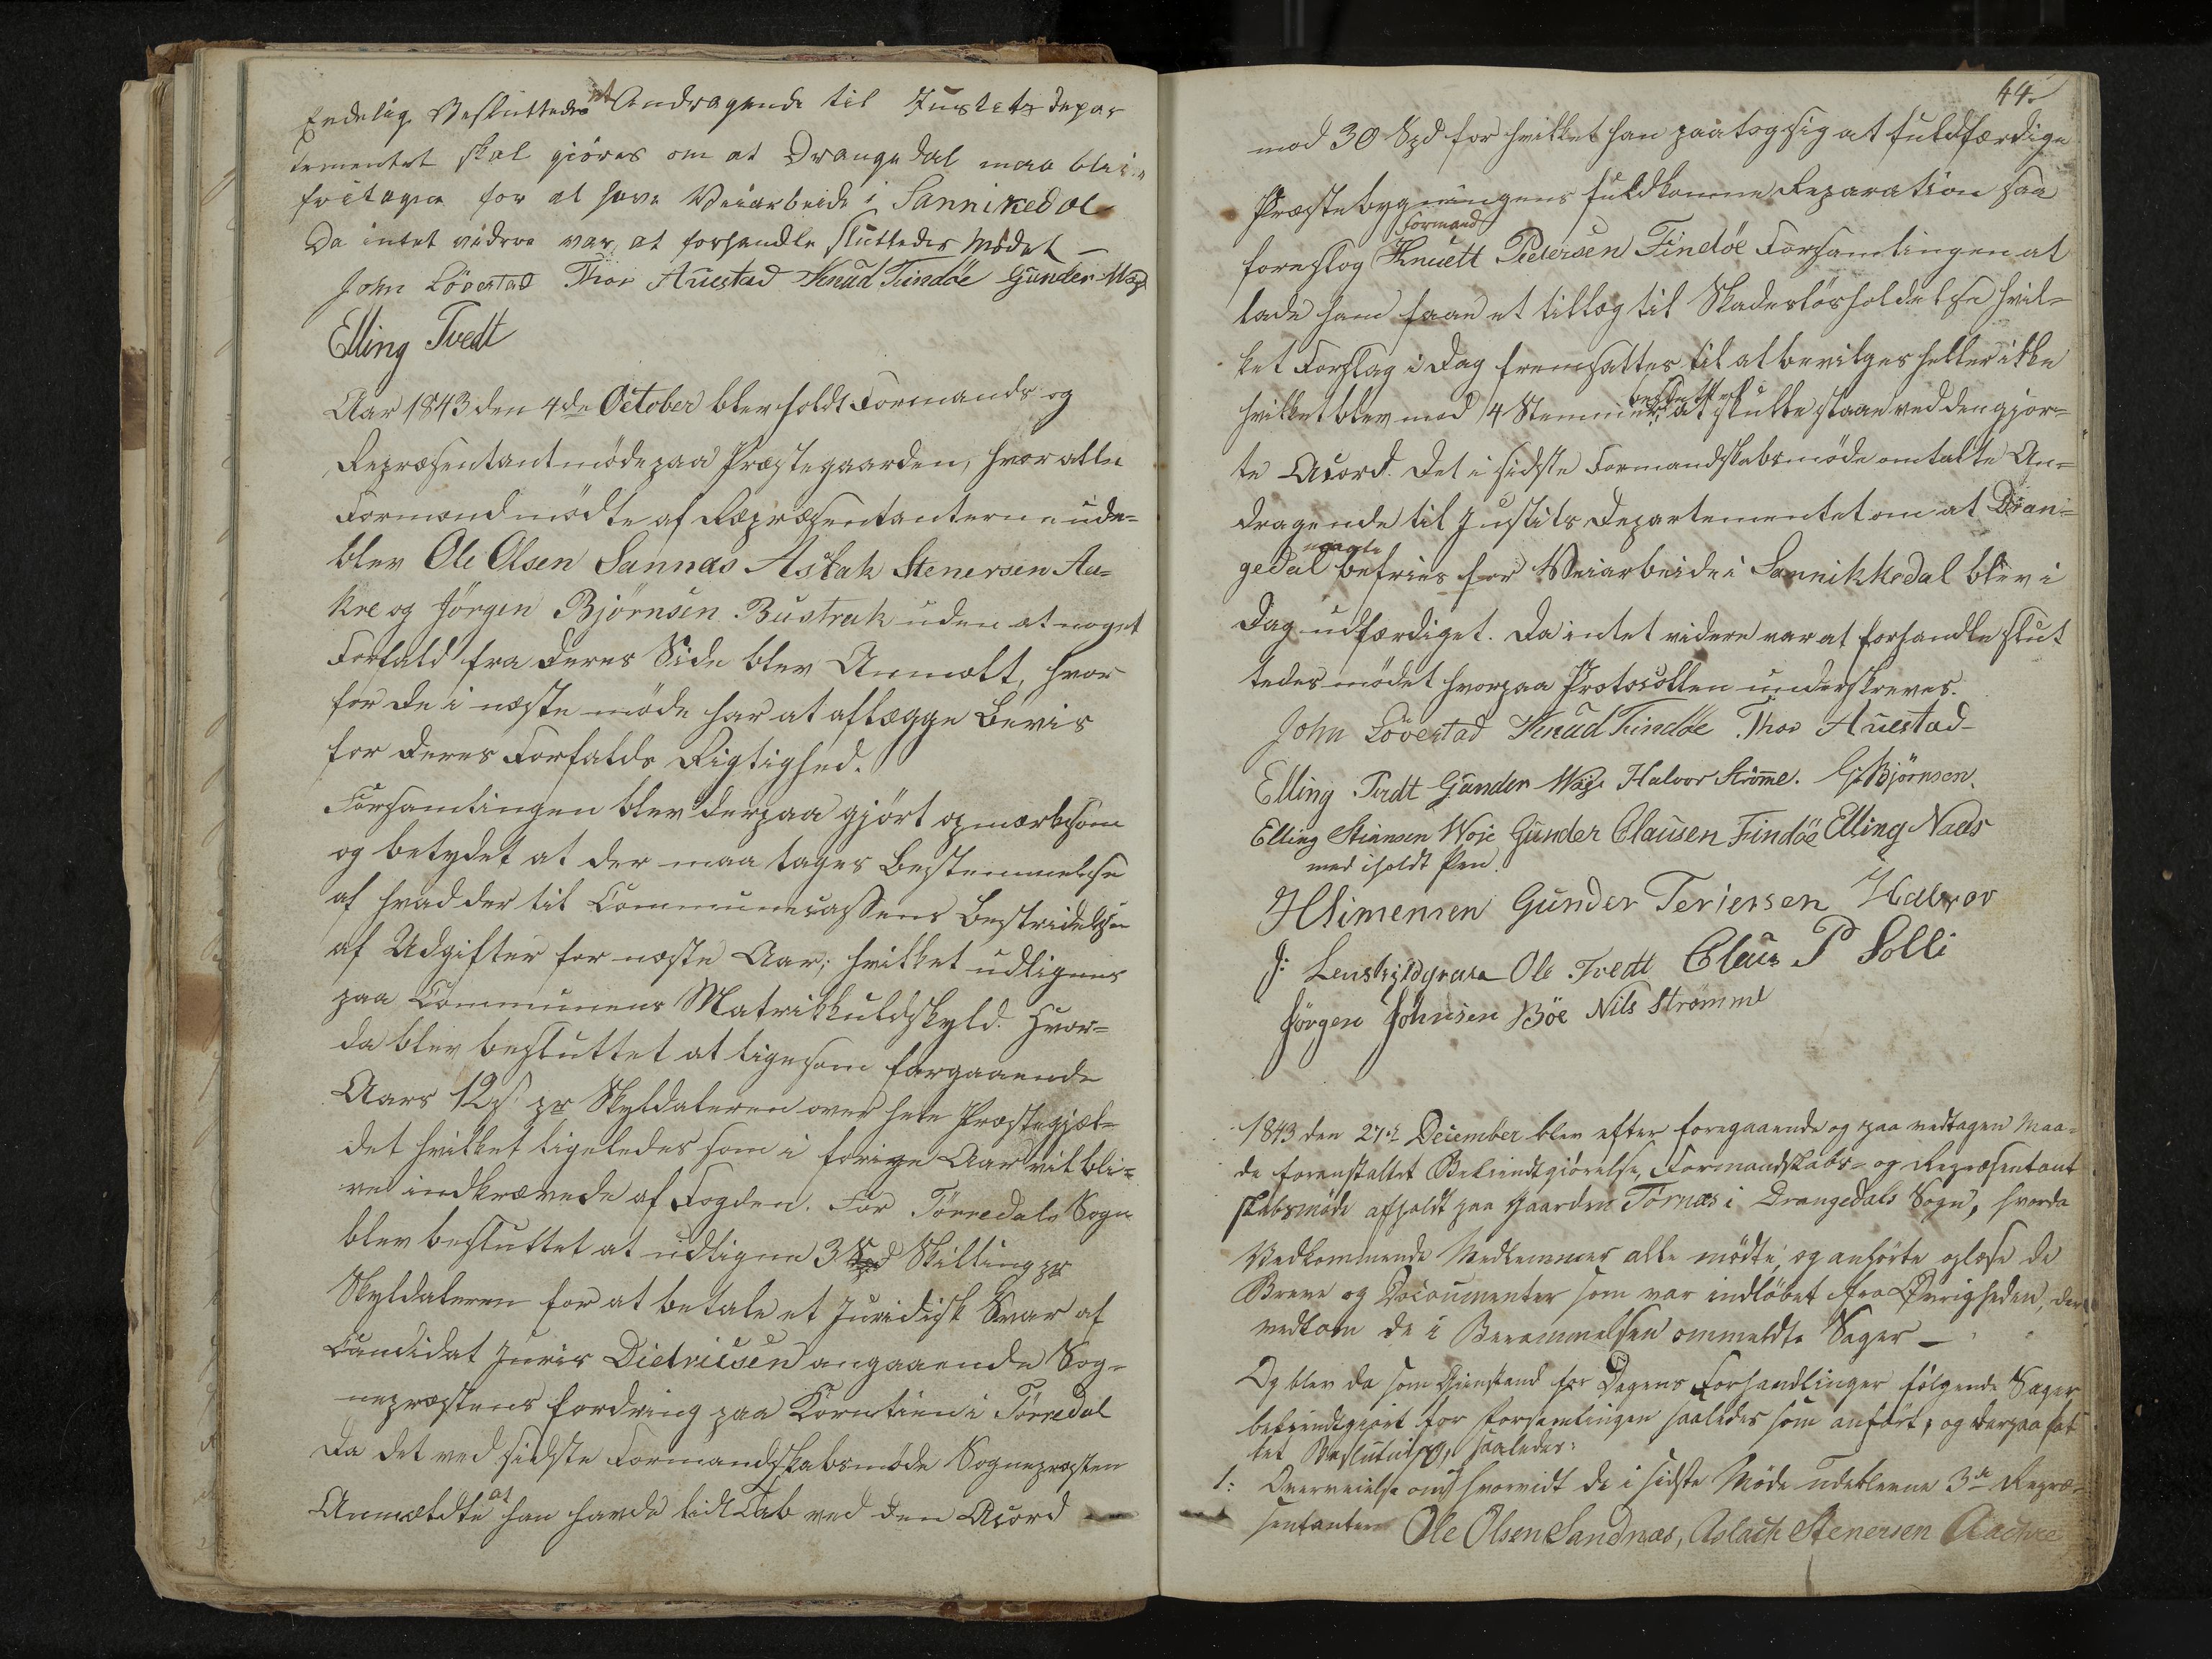 Endelig Besluttedes et Andragende til Justits depar
tementet skal giöres om at Drangedal maa bliv
fritagen for at have Veiarbeide i Sannikedal
Da intet videre var at forhandle sluttedes Mödet –
John Lövestad Thor Auestad Knud Findöe Gunder Woje
Elling Tvedt
Aar 1843 den 4de October blev holdt Formands og
Repræsentantmöde paa Præstegaarden, hvor alle
Formænd mödte af Repræsentanterne ude=
blev Ole Olsen Sannæs Aslak Stenersen Aa=
kre og Jörgen Björnsen Bustrak uden at noget
Forfald fra deres Side blev Anmælt, hvor
for de i næste möde har at aflægge Bevis
for deres Forfalds Rigtighed.
Forsamlingen blev derpaa gjört opmærksom
og betydet at der maa tages Bestemmelse
af hvad der til Communecassens Bestridelse
af Udgifter for næste Aar; hvilket udlignes
paa Communens Matrikkulskyld. Hvor=
da blev besluttet at ligesom forgaaende
Aars 12 s pr Skyldaleren over hele Præstegjæl=
det hvilket ligeledes som i forige Aar vil bli=
ve indkrævede af Fogden. For Törredals Sogn
blev besluttet at udligne 3 Skilling pr
Skyldaleren for at betale et Juridisk Svar af
Candidat Juris Dietricsen angaaende Sog=
nepræstens fordring paa Korntiende i Törredal
Da det ved sidste Formandskabsmöde Sognepræsten
Anmældte at han havde lidt Tab ved den Acord
44.
mod 30 Spd for hvilket han paatog sig at fuldfærdige
Præstebygningens fuldkomne Reparation saa
foreslog Formand Knuett Pedersen Findöe Forsamlingen at
lade ham faae et tillæg til Skadeslösholdelse hvil=
ket Forslag i Dag fremsattes til at bevilges heller ikke
hvilket blev med 14 Stemmer besluttet at skulle staae ved den gjor=
te Acord. Det i sidste Formandskabsmöde omtalte An=
dragende til Justits Departementet om at Dran=
gedal maatte befries for Veiarbeide i Sannikkedal blev i
Dag udfærdiget. Da intet videre var at forhandle slut
tedes mödet hvorpaa Protocollen underskreves.
John Lövestad Knud Findöe Thor Auestad
Elling Tvedt Gunder Woje Halvor Strömme. Björnsen.
Elling Stiansen Woje Gunder Clausen Findöe Elling Naas
med iholdt Pen.
HSimensen Gunder Teriersen Halvor
J: Ole Tvedt Claus P Solli
Jörgen Johnsen Böe Nils Strömme
1843 den 27de December blev efter foregaaende og paa vedtagen Maa=
de foranstaltet Bekiendtgiörelse, Formandskabs= og Repræsentant
skabsmöde afholdt paa Gaarden Törnæs i Drangedals Sogn, hvorda
Vedkommende Medlemmer alle mödte, og anhörte oplæse de
Breve og Documenter som var indlöbet fra Övrigheden, der
vedkom de i Berammelsen ommeldte Sager –
Og blev da som Gienstand for Dagens Forhandlinger fölgende Sager
bekiendtgiort for Forsamlingen saaledes som anfört, og derpaa fat
tet Beslutning, saaledes:
1: Overveielse om hvorvidt de i sidste Möde udeblevne 3de Repræ=
sentanter Ole Olsen Sandnæs, Aslach Stenersen Aachre